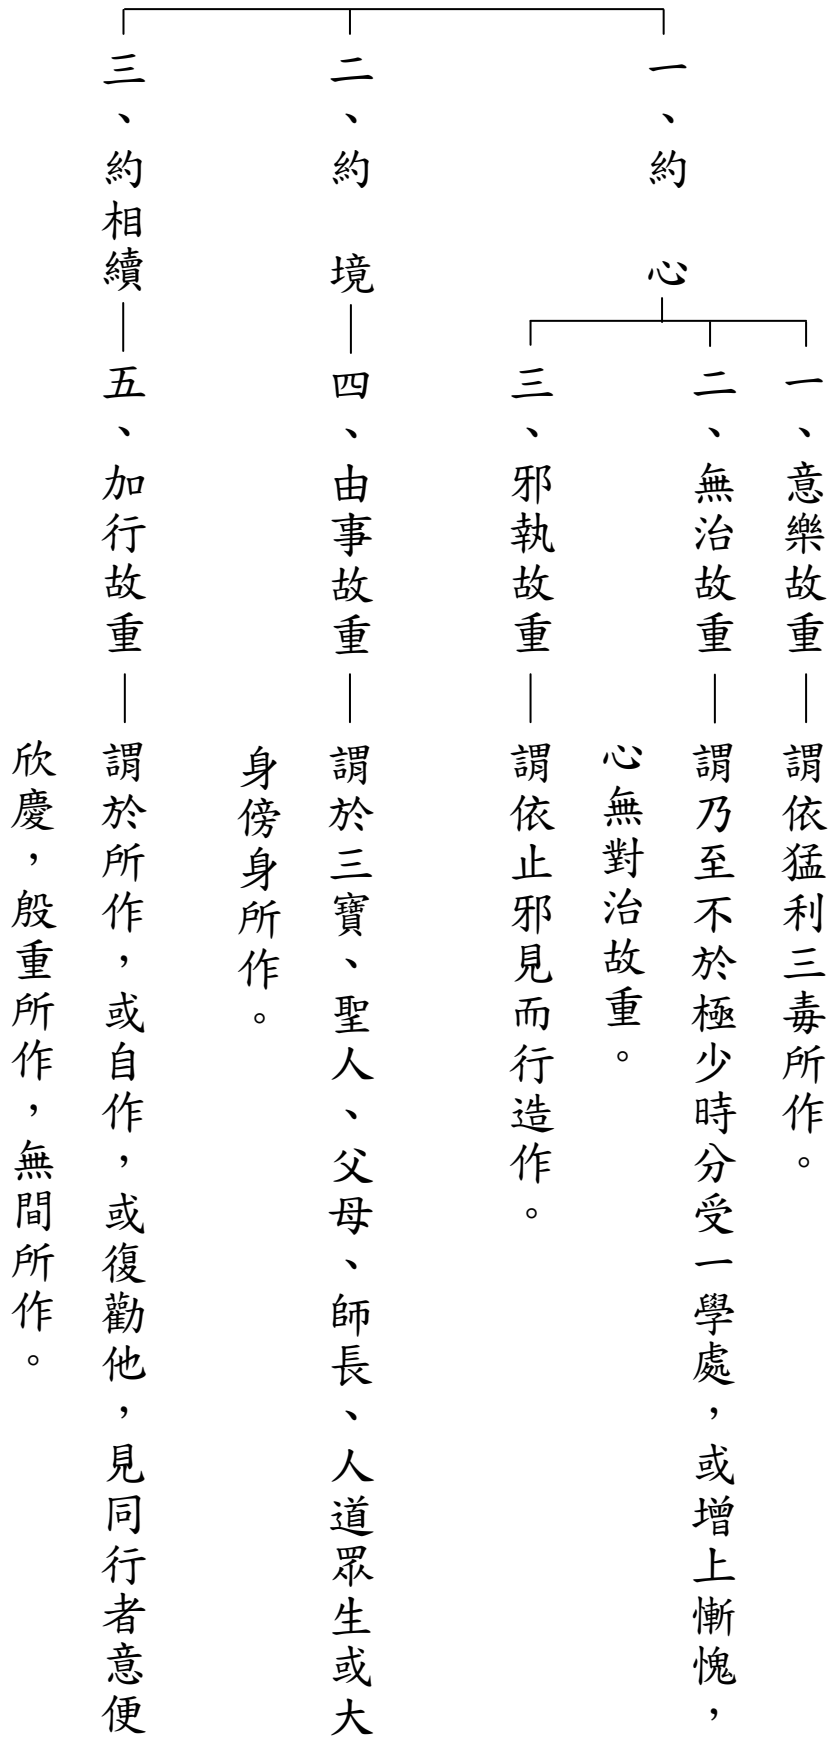 一、約心
一、意樂故重
謂依猛利三毒所作。
二、無治故重
謂乃至不於極少時分受一學處，或增上慚愧，
心無對治故重。
三、邪執故重
謂依止邪見而行造作。
二、約境
四、由事故重
謂於三寶、聖人、父母、師長、人道眾生或大
身傍身所作。
三、約相續
五、加行故重
謂於所作，或自作，或復勸他，見同行者意便
欣慶，殷重所作，無間所作。